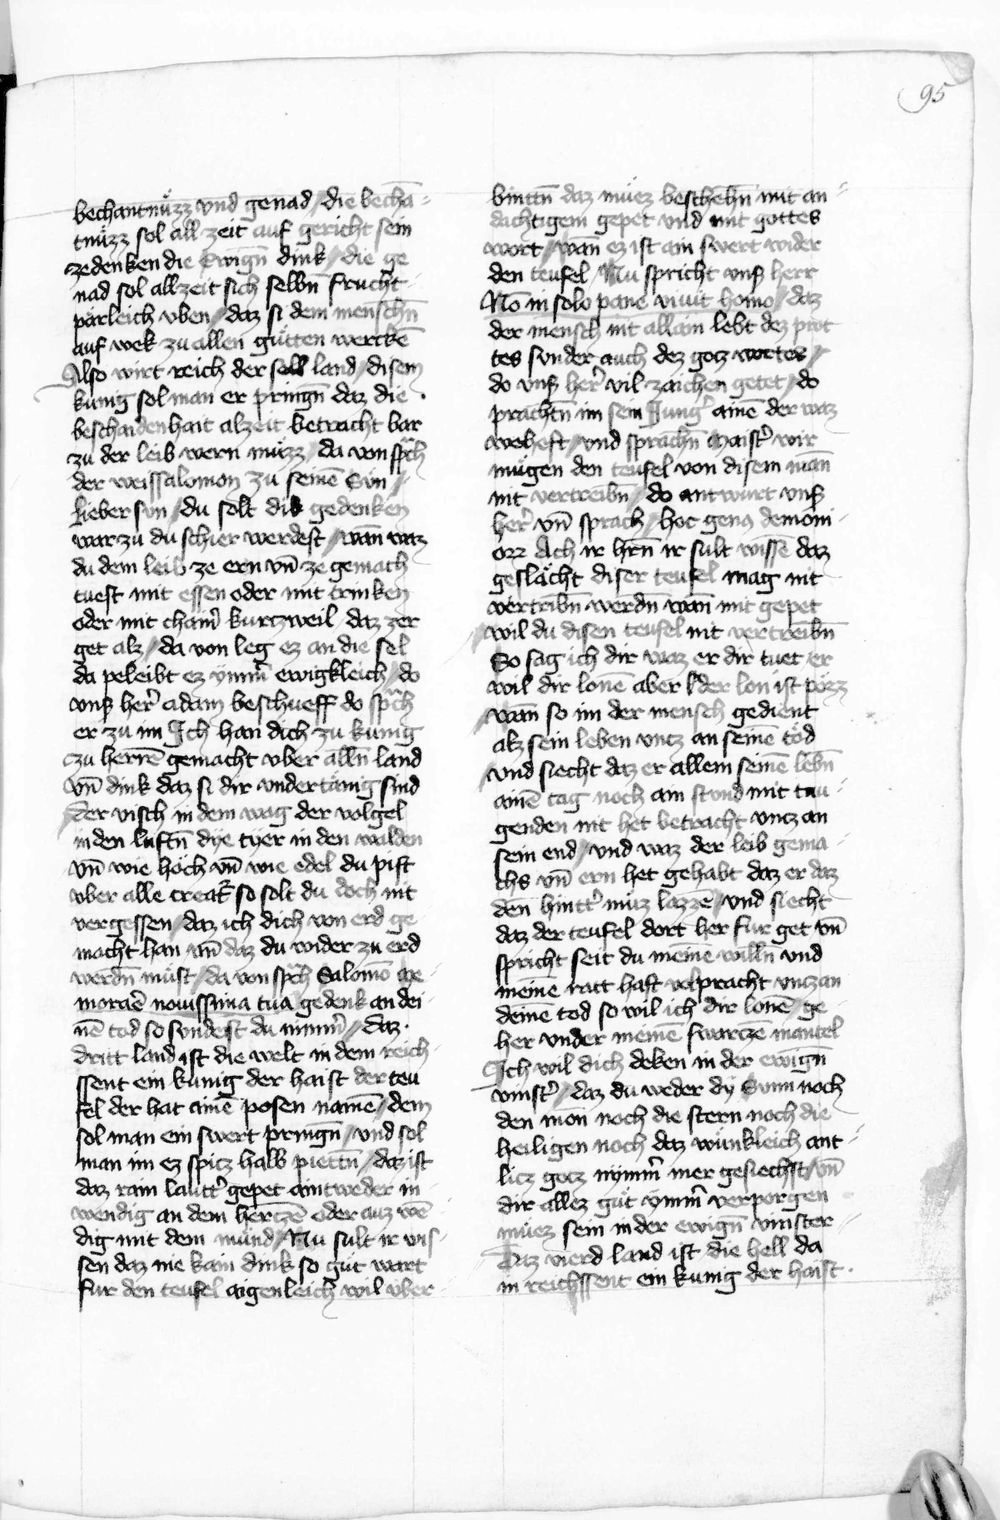 95
bechantnüzz vnd genad / die bechā-
tnüzz sol all zeit auf gericht sein
ze denken die Ewign̄ dink / die ge
nad sol allzeit sich selbn̄ frucht-
pärleich vben / daz si dem menschn̄
auf wek zu allen gütten werckē
Also wirt reich der sell land / disem
kunig sol man er pringn̄ daz die
beschaidenhait alzeit betracht bar
zu der leib wern müzz / da von spͣch
der weis salomon zu seinē Sun /
Lieber sun / du solt dik gedenken
war zu du schier werdest / wan̄ waz
du dem leib ze ern vn̄ ze gemach
tuest mit essen oder mit trinken
oder mit chainˀ kurtzweil daz zer
get alz / da von leg ez an die sel
da peleibt ez ymmˀ ewigkleich / do
vnsˀ herˀ adam beschueff do spͣch
er zu im Ich han dich zu kunig
zu herrē gemacht vber alln̄ land
vn̄ dink daz si dir vndertänig sind
der visch in dem wag der volgel
in den luftn̄ dye tyer in den walden
vn̄ wie höch vn̄ wie edel du pist
vber alle creatˀ so solt du doch nit
vergessen / daz ich dich von erd ge-
macht han vn̄ daz du wider zu erd
werdn̄ müst / da von spͣch Salomō me-
morarē nouissima tua gedenk an dei-
nē tod so sundest du nimmˀ / daz
dritt land ist die welt in dem reich-
ssent ein kunig der haist der teu
fel der hat ainē posen namē / dem
sol man ein swert pringn̄ / vnd sol
man im ez spitz halb piettn̄ / daz ist
daz rain lauttˀ gepet aintweder in
wendig an dem hertzē oder auz wē
dig mit dem mund / Nu sult ir wis-
sen daz nie kain dink so güt wart
fur den teufel aigenleich wil vber-
binttn̄ daz müez beschehn̄ mit an-
dächtigem gepet vnd mit gottes
wort / wan̄ ez ist ain swert wider
den teufel / Nu spricht vnsˀ herr
Nō in solo pane viuit homo / daz
der mensch nit allain lebt dez prot
tes sunder auch dez gotz wortes /
do vnsˀ herˀ vil zaichen getet / do
prachtn̄ im sein Jungˀ ainē der waz
weheft / vnd sprachn̄ Maistˀ wir
mügen den teufel von disem man̄
nit vertreibn̄ / do antwurt vnsˀ
herˀ vn̄ sprach / hoc genꝰ demoni-
orꝝ Ach ir hrn̄ ir sult wissē daz
geslächt diser teufel mag nit
vertribn̄ werdn̄ wan̄ mit gepet
wil du disen teufel nit vertreibn̄
So sag ich dir waz er dir tuet er
wil dir lonē aber der lon ist pözz
wan̄ so im der mensch gedient
alz sein leben vntz an seinē tod
vnd siecht daz er allem seinē lebn̄
ainē tag noch ain stund mit tau-
genden nit het betracht vntz an
sein end / vnd waz der leib gema-
chs vn̄ ern het gehabt daz er daz
den hinttˀ müz lazzē / vnd siecht
daz der teufel dort her fur get vn̄
spricht seit du meinē willn̄ vnd
meinē ratt hast volpracht vntz an
deinē tod so wil ich dir lonē / ge
her vnder meinē swartzē mantel
Ich wil dich deken in der ewign̄
vinstˀ / daz du weder dy Sunn noch
den mon noch die stern noch die
heiligen noch daz wünkleich ant-
litz gotz nymmˀ mer gesiechst / vn̄
dir allez güt ymmˀ verporgen
müez sein in der ewign̄ vinster
Daz vierd land ist die hell da
in reichssent ein kunig der haist